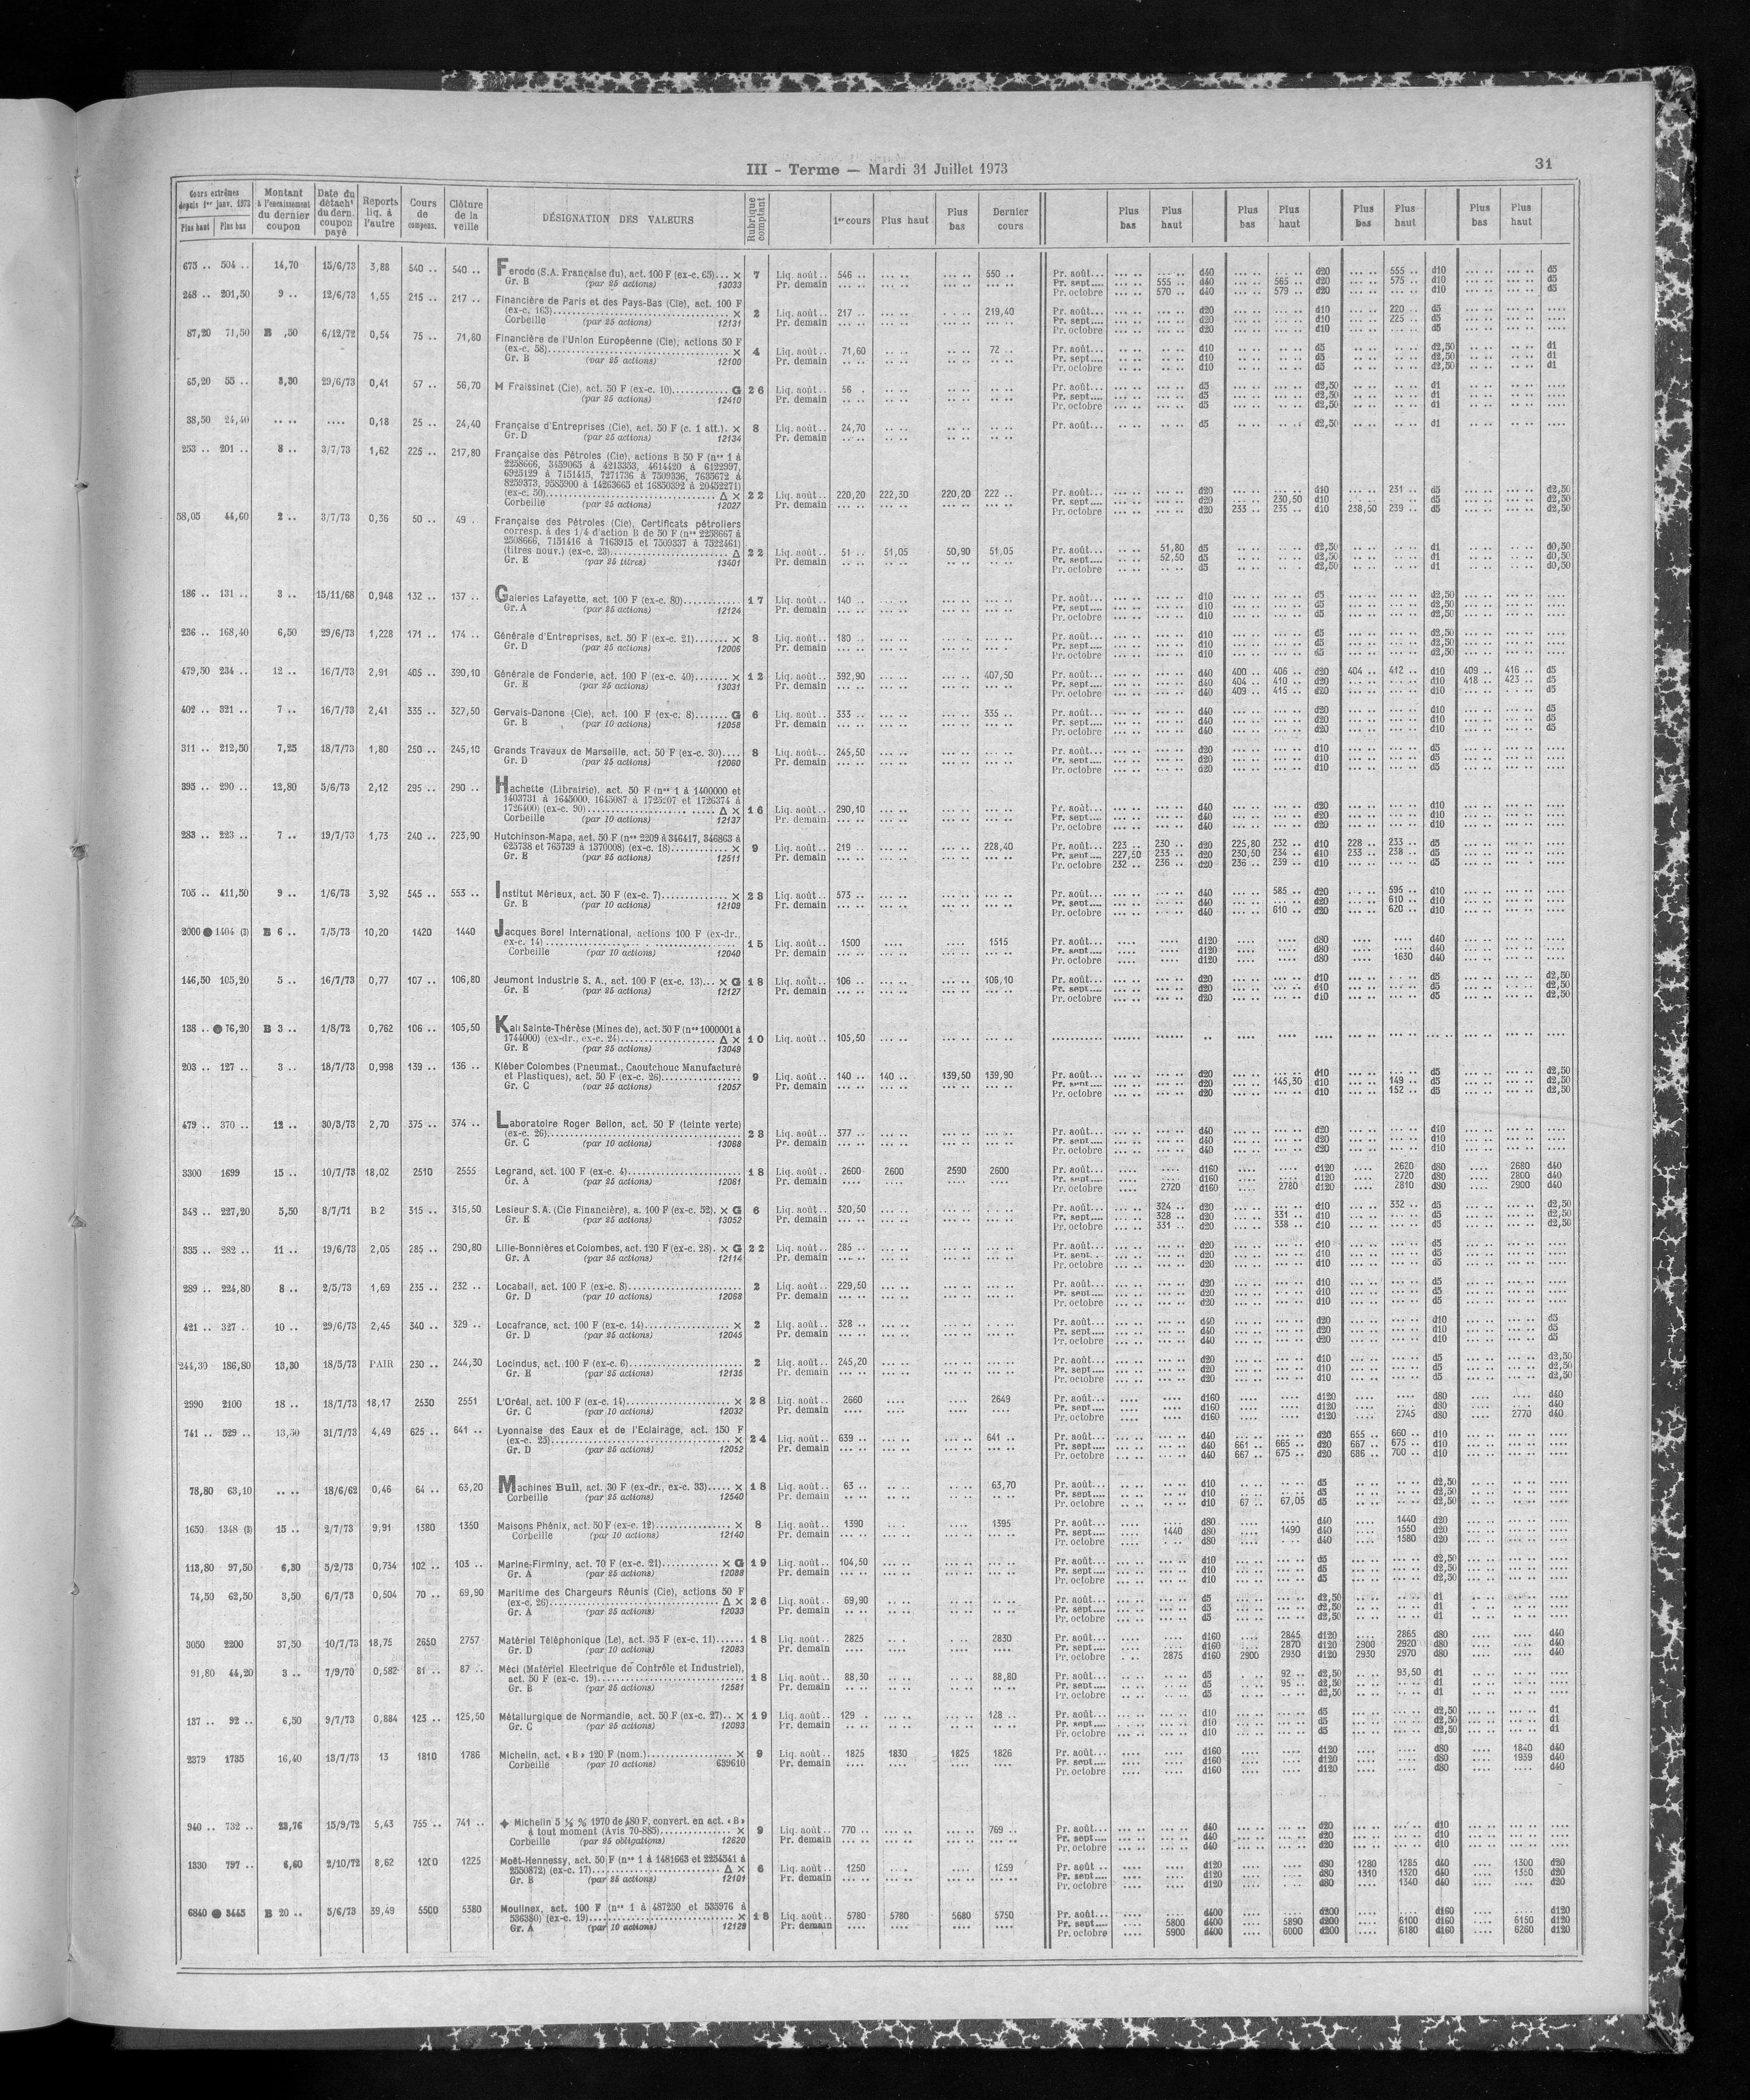 III - Terme — Mardi 31 Juillet 1973
31
Cours extrêmes depuis 1er janv. 1973 Plus haut Plus bas | Montant à l'encaissement du dernier coupon | Date du détacht du dern. coupon payé | Reports liq. à l'autre | Cours de compens. | Clôture de la veille | DÉSIGNATION DES VALEURS | Rubrique comptant | 1er cours | Plus haut | Plus bas | Dernier cours | Plus bas | Plus haut | Plus bas | Plus haut | Plus bas | Plus haut | Plus bas | Plus haut
675 .. 504 .. 14,70 15/6/73 3,88 540 .. 540 .. Ferodo (S.A. Française du), act. 100 F (ex-c. 65)... × 7 Liq. août.. 546 .. 550 .. Pr. août... d40 d20 555 .. d10 d5
Gr. B 13033 Pr. demain Pr. sept.... 555 .. d40 565 .. d20 575 .. d10 d5
Pr. octobre 570 .. d40 579 .. d20 d10 d5
248 .. 201,50 9 .. 12/6/73 1,55 215 .. 217 .. Financière de Paris et des Pays-Bas (Cie), act. 100 F
(ex-c. 163) × 2 Liq. août.. 217 .. 219,40 Pr. août... d20 d10 220 .. d5
Corbeille (par 25 actions) 12131 Pr. demain Pr. sept.... d20 d10 225 .. d5
Pr. octobre d20 d10 d5
87,20 71,50 B ,50 6/12/72 0,54 75 .. 71,60 Financière de l'Union Européenne (Cie), actions 50 F
(ex-c. 58) × 4 Liq. août.. 71,60 72 .. Pr. août... d10 d5 d2,50 d1
Gr. B (par 25 actions) 12100 Pr. demain Pr. sept.... d10 d5 d2,50 d1
Pr. octobre d10 d5 d2,50 d1
65,20 55 .. 3,30 29/6/73 0,41 57 .. 56,70 M Fraissinet (Cie), act. 50 F (ex-c. 10) G 26 Liq. août.. 56 . Pr. août... d5 d2,50 d1
(par 25 actions) 12410 Pr. demain Pr. sept.... d5 d2,50 d1
Pr. octobre d5 d2,50 d1
38,50 24,40 .... .... 0,18 25 .. 24,40 Française d'Entreprises (Cie), act. 50 F (c. 1 att.). × 8 Liq. août.. 24,70 Pr. août... d5 d2,50 d1
Gr. D (par 25 actions) 12134 Pr. demain
253 .. 201 .. 8 .. 3/7/73 1,62 225 .. 217,80 Française des Pétroles (Cie), actions B 50 F (nos 1 à
2258666, 3459065 à 4213353, 4614420 à 6122997,
6925129 à 7151415, 7271736 à 7509336, 7635672 à
8259373, 9585900 à 14263665 et 16850392 à 20452271)
(ex-c. 50) Δ × 22 Liq. août.. 220,20 222,30 220,20 222 .. Pr. août... d20 d10 231 .. d5 d2,50
Corbeille (par 25 actions) 12027 Pr. demain Pr. sept.... d20 230,50 d10 d5 d2,50
Pr. octobre d20 233 .. 235 .. d10 238,50 239 .. d5 d2,50
58,05 44,60 2 .. 3/7/73 0,36 50 .. 49 . Française des Pétroles (Cie), Certificats pétroliers
corresp. à des 1/4 d'action B de 50 F (nos 2258667 à
2508666, 7151416 à 7163915 et 7509337 à 7522461)
(titres nouv.) (ex-c. 23) Δ 22 Liq. août.. 51 .. 51,05 50,90 51,05 Pr. août... 51,80 d5 d2,50 d1 d0,50
Gr. E (par 25 titres) 13401 Pr. demain Pr. sept.... 52,50 d5 d2,50 d1 d0,50
Pr. octobre d5 d2,50 d1 d0,50
186 .. 131 .. 3 .. 15/11/68 0,948 132 .. 137 .. Galeries Lafayette, act. 100 F (ex-c. 80) 17 Liq. août.. 140 .. Pr. août... d10 d5 d2,50
Gr. A (par 25 actions) 12124 Pr. demain Pr. sept.... d10 d5 d2,50
Pr. octobre d10 d5 d2,50
236 .. 168,40 6,50 29/6/73 1,228 171 .. 174 .. Générale d'Entreprises, act. 50 F (ex-c. 21) × 8 Liq. août.. 180 .. Pr. août... d10 d5 d2,50
Gr. D (par 25 actions) 12006 Pr. demain Pr. sept.... d10 d5 d2,50
Pr. octobre d10 d5 d2,50
479,50 234 .. 12 .. 16/7/73 2,91 405 .. 390,10 Générale de Fonderie, act. 100 F (ex-c. 40) × 12 Liq. août.. 392,90 407,50 Pr. août... d40 400 .. 406 .. d20 404 .. 412 .. d10 409 .. 416 .. d5
Gr. E (par 25 actions) 13031 Pr. demain Pr. sept.... d40 404 .. 410 .. d20 d10 418 .. 423 .. d5
Pr. octobre d40 409 .. 415 .. d20 d10 d5
402 .. 321 .. 7 .. 16/7/73 2,41 335 .. 327,50 Gervais-Danone (Cie), act. 100 F (ex-c. 8) G 6 Liq. août.. 333 .. 335 .. Pr. août... d40 d20 d10 d5
Gr. B (par 10 actions) 12058 Pr. demain Pr. sept.... d40 d20 d10 d5
Pr. octobre d40 d20 d10 d5
311 .. 212,50 7,25 18/7/73 1,80 250 .. 245,10 Grands Travaux de Marseille, act. 50 F (ex-c. 30) 8 Liq. août.. 245,50 Pr. août... d20 d10 d5
Gr. D (par 25 actions) 12060 Pr. demain Pr. sept.... d20 d10 d5
Pr. octobre d20 d10 d5
395 .. 290 .. 12,80 5/6/73 2,12 295 .. 290 .. Hachette (Librairie), act. 50 F (nos 1 à 1400000 et
1403731 à 1645000, 1645087 à 1725207 et 1726374 à
1726400) (ex-c. 90) Δ × 16 Liq. août.. 290,10 Pr. août... d40 d20 d10
Corbeille (par 10 actions) 12137 Pr. demain Pr. sept.... d40 d20 d10
Pr. octobre d40 d20 d10
283 .. 223 .. 7 .. 19/7/73 1,73 240 .. 223,90 Hutchinson-Mapa, act. 50 F (nos 2209 à 346417, 346863 à
625738 et 765739 à 1370008) (ex-c. 18) × 9 Liq. août.. 219 .. 228,40 Pr. août... 223 .. 230 .. d20 225,80 232 .. d10 228 .. 233 .. d5
Gr. E (par 25 actions) 12511 Pr. demain Pr. sept.... 227,50 233 .. d20 230,50 234 .. d10 233 .. 238 .. d5
Pr. octobre 232 .. 236 .. d20 236 .. 239 .. d10 d5
705 .. 411,50 9 .. 1/6/73 3,92 545 .. 553 .. Institut Mérieux, act. 50 F (ex-c. 7) × 23 Liq. août.. 573 .. Pr. août... d40 585 .. d20 595 .. d10
Gr. B (par 10 actions) 12109 Pr. demain Pr. sept.... d40 d20 610 .. d10
Pr. octobre d40 610 .. d20 620 .. d10
2000 ● 1404 (3) B 6 .. 7/5/73 10,20 1420 1440 Jacques Borel International, actions 100 F (ex-dr.,
ex-c. 14) 15 Liq. août.. 1500 1515 Pr. août... d120 d80 d40
Corbeille (par 10 actions) 12040 Pr. demain Pr. sept.... d120 d80 d40
Pr. octobre d120 d80 1630 d40
146,50 105,20 5 .. 16/7/73 0,77 107 .. 106,80 Jeumont Industrie S. A., act. 100 F (ex-c. 13)... × G 18 Liq. août.. 106 .. 106,10 Pr. août... d20 d10 d5 d2,50
Gr. E (par 25 actions) 12127 Pr. demain Pr. sept.... d20 d10 d5 d2,50
Pr. octobre d20 d10 d5 d2,50
138 .. ● 76,20 B 3 .. 1/8/72 0,762 106 .. 105,50 Kali Sainte-Thérèse (Mines de), act. 50 F (nos 1000001 à
1744000) (ex-dr., ex-c. 24) Δ × 10 Liq. août.. 105,50
Gr. E (par 25 actions) 13049
203 .. 127 .. 3 .. 18/7/73 0,998 139 .. 136 .. Kléber Colombes (Pneumat., Caoutchouc Manufacturé
et Plastiques), act. 50 F (ex-c. 26) 9 Liq. août.. 140 .. 140 .. 139,50 139,90 Pr. août... d20 d10 d5 d2,50
Gr. C (par 25 actions) 12057 Pr. demain Pr. sept.... d20 145,30 d10 149 .. d5 d2,50
Pr. octobre d20 d10 152 .. d5 d2,50
479 .. 370 .. 12 .. 30/3/73 2,70 375 .. 374 .. Laboratoire Roger Bellon, act. 50 F (teinte verte)
(ex-c. 26) 23 Liq. août.. 377 .. Pr. août... d40 d20 d10
Gr. C (par 10 actions) 13068 Pr. demain Pr. sept.... d40 d20 d10
Pr. octobre d40 d20 d10
3300 1699 15 .. 10/7/73 18,02 2510 2555 Legrand, act. 100 F (ex-c. 4) 18 Liq. août.. 2600 2600 2590 2600 Pr. août... d160 d120 2620 d80 2680 d40
Gr. A (par 10 actions) 12061 Pr. demain Pr. sept.... d160 d120 2720 d80 2800 d40
Pr. octobre 2720 d160 2780 d120 2810 d80 2900 d40
348 .. 227,20 5,50 8/7/71 B 2 315 .. 315,50 Lesieur S.A. (Cie Financière), a. 100 F (ex-c. 52). × G 6 Liq. août.. 320,50 Pr. août... 324 .. d20 d10 332 .. d5 d2,50
Gr. E (par 25 actions) 13052 Pr. demain Pr. sept.... 328 .. d20 331 .. d10 d5 d2,50
Pr. octobre 331 .. d20 338 .. d10 d5 d2,50
335 .. 282 .. 11 .. 19/6/73 2,05 285 .. 290,80 Lille-Bonnières et Colombes, act. 120 F (ex-c. 28). × G 22 Liq. août.. 285 .. Pr. août... d20 d10 d5
Gr. A (par 25 actions) 12114 Pr. demain Pr. sept.... d20 d10 d5
Pr. octobre d20 d10 d5
289 .. 224,80 8 .. 2/5/73 1,69 235 .. 232 .. Locabail, act. 100 F (ex-c. 8) 2 Liq. août.. 229,50 Pr. août... d20 d10 d5
Gr. D (par 10 actions) 12068 Pr. demain Pr. sept.... d20 d10 d5
Pr. octobre d20 d10 d5
421 .. 327 .. 10 .. 29/6/73 2,45 340 .. 329 .. Locafrance, act. 100 F (ex-c. 14) × 2 Liq. août.. 328 .. Pr. août... d40 d20 d10 d5
Gr. D (par 25 actions) 12045 Pr. demain Pr. sept.... d40 d20 d10 d5
Pr. octobre d40 d20 d10 d5
244,30 186,80 13,30 18/5/73 PAIR 230 .. 244,30 Locindus, act. 100 F (ex-c. 6) 2 Liq. août.. 245,20 Pr. août... d20 d10 d5 d2,50
Gr. E (par 25 actions) 12135 Pr. demain Pr. sept.... d20 d10 d5 d2,50
Pr. octobre d20 d10 d5 d2,50
2990 2100 18 .. 18/7/73 18,17 2530 2551 L'Oréal, act. 100 F (ex-c. 14) × 28 Liq. août.. 2660 2649 Pr. août... d160 d120 d80 d40
Gr. C (par 10 actions) 12032 Pr. demain Pr. sept.... d160 d120 d80 d40
Pr. octobre d160 d120 2745 d80 2770 d40
741 .. 529 .. 13,50 31/7/73 4,49 625 .. 641 .. Lyonnaise des Eaux et de l'Eclairage, act. 150 F
(ex-c. 25) × 24 Liq. août.. 639 .. 641 .. Pr. août... d40 d20 655 .. 660 .. d10
Gr. D (par 25 actions) 12052 Pr. demain Pr. sept.... d40 661 .. 665 .. d20 667 .. 675 .. d10
Pr. octobre d40 667 .. 675 .. d20 686 .. 700 .. d10
78,80 63,10 .... 18/6/62 0,46 64 .. 63,20 Machines Bull, act. 30 F (ex-dr., ex-c. 33) × 18 Liq. août.. 63 .. 63,70 Pr. août... d10 d5 d2,50
Corbeille (par 25 actions) 12540 Pr. demain Pr. sept.... d10 d5 d2,50
Pr. octobre d10 67 .. 67,05 d5 d2,50
1650 1348 (3) 15 .. 2/7/73 9,91 1380 1350 Maisons Phénix, act. 50 F (ex-c. 12) × 8 Liq. août.. 1390 1395 Pr. août... d80 d40 1440 d20
Corbeille (par 10 actions) 12140 Pr. demain Pr. sept.... 1440 d80 1490 d40 1550 d20
Pr. octobre d80 d40 1580 d20
113,80 97,50 6,30 5/2/73 0,734 102 .. 103 .. Marine-Firminy, act. 70 F (ex-c. 21) × G 19 Liq. août.. 104,50 Pr. août... d10 d5 d2,50
Gr. A (par 25 actions) 12088 Pr. demain Pr. sept.... d10 d5 d2,50
Pr. octobre d10 d5 d2,50
74,50 62,50 3,50 6/7/73 0,504 70 .. 69,90 Maritime des Chargeurs Réunis (Cie), actions 50 F
(ex-c. 26) Δ × 26 Liq. août.. 69,90 Pr. août... d5 d2,50 d1
Gr. A (par 25 actions) 12033 Pr. demain Pr. sept.... d5 d2,50 d1
Pr. octobre d5 d2,50 d1
3050 2200 37,50 10/7/73 18,75 2650 2757 Matériel Téléphonique (Le), act. 95 F (ex-c. 11) 18 Liq. août.. 2825 2830 Pr. août... d160 2845 d120 2865 d80 d40
Gr. D (par 10 actions) 12083 Pr. demain Pr. sept.... d160 2870 d120 2900 2920 d80 d40
Pr. octobre 2875 d160 2900 2950 d120 2930 2970 d80 d40
91,80 44,20 3 .. 7/9/70 0,582 81 .. 87 .. Méci (Matériel Electrique de Contrôle et Industriel),
act. 50 F (ex-c. 19) 18 Liq. août.. 88,30 88,80 Pr. août... d5 92 .. d2,50 93,50 d1
Gr. B (par 25 actions) 12581 Pr. demain Pr. sept.... d5 95 .. d2,50 d1
Pr. octobre d5 d2,50 d1
137 .. 92 .. 6,50 9/7/73 0,884 123 .. 125,50 Métallurgique de Normandie, act. 50 F (ex-c. 27).. × 19 Liq. août.. 129 . 128 .. Pr. août... d10 d5 d2,50 d1
Gr. C (par 25 actions) 12093 Pr. demain Pr. sept.... d10 d5 d2,50 d1
Pr. octobre d10 d5 d2,50 d1
2379 1785 16,40 13/7/73 13 1810 1786 Michelin, act. « B » 120 F (nom.) × 9 Liq. août.. 1825 1830 1825 1826 Pr. août... d160 d120 d80 1840 d40
Corbeille (par 10 actions) 639610 Pr. demain Pr. sept.... d160 d120 d80 1939 d40
Pr. octobre d160 d120 d80 d40
940 .. 732 .. 23,76 15/9/72 5,43 755 .. 741 .. ✦ Michelin 5 ½ % 1970 de 480 F, convert. en act. « B »
à tout moment (Avis 70-885) × 9 Liq. août.. 770 .. 769 .. Pr. août... d40 d20 d10
Corbeille (par 25 obligations) 12620 Pr. demain Pr. sept.... d40 d20 d10
Pr. octobre d40 d20 d10
1330 797 .. 6,60 2/10/72 8,62 1200 1225 Moët-Hennessy, act. 50 F (nos 1 à 1481663 et 2254541 à
2550872) (ex-c. 17) Δ × 6 Liq. août.. 1250 1259 Pr. août .. d120 d80 1280 1285 d40 1300 d20
Gr. B (par 25 actions) 12101 Pr. demain Pr. sept.... d120 d80 1310 1320 d40 1350 d20
Pr. octobre d120 d80 1340 d40 d20
6840 ● 3445 B 20 .. 5/6/73 39,49 5500 5380 Moulinex, act. 100 F (nos 1 à 487250 et 535976 à
536380) (ex-c. 19) × 18 Liq. août.. 5780 5780 5680 5750 Pr. août... d400 d200 d160 d120
Gr. A (par 10 actions) 12129 Pr. demain Pr. sept.... 5800 d400 5890 d200 6100 d160 6150 d120
Pr. octobre 5900 d400 6000 d200 6180 d160 6260 d120